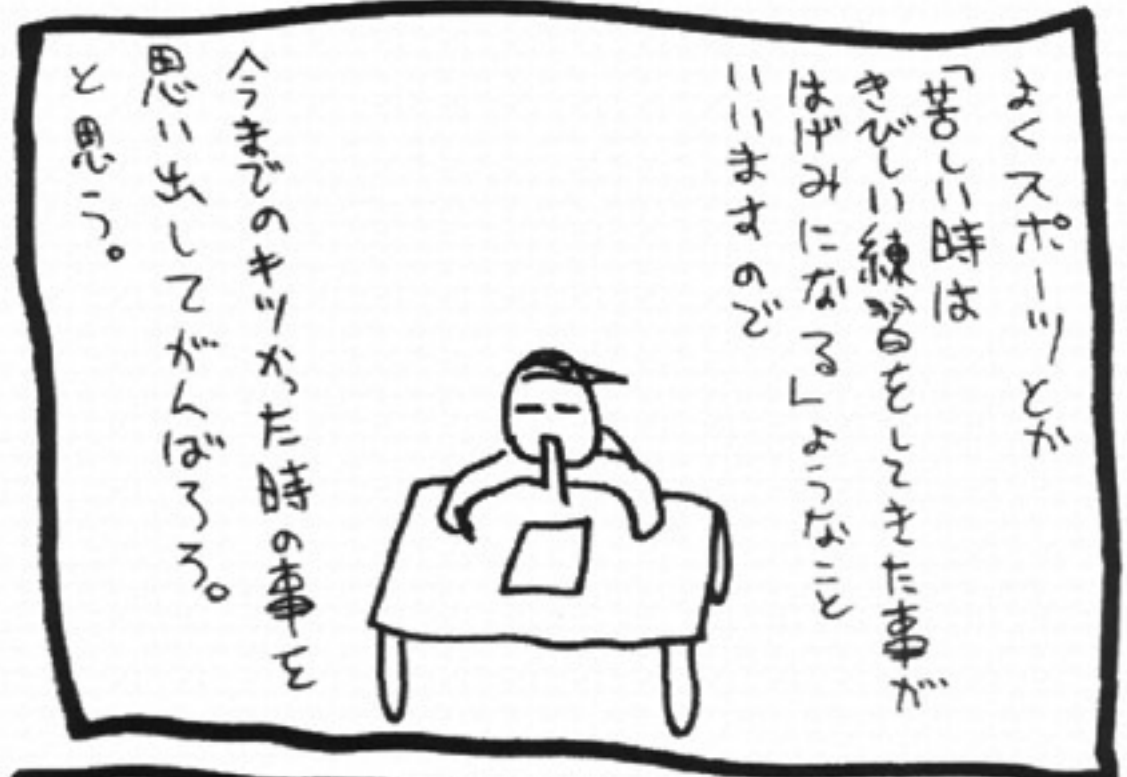 よくスポーツとか
「苦しい時は
きびしい練習をしてきた事が
はげみになる」ようなこと
いいますので
今までのキツかった時の事を
思い出してがんばろう。
と思う。